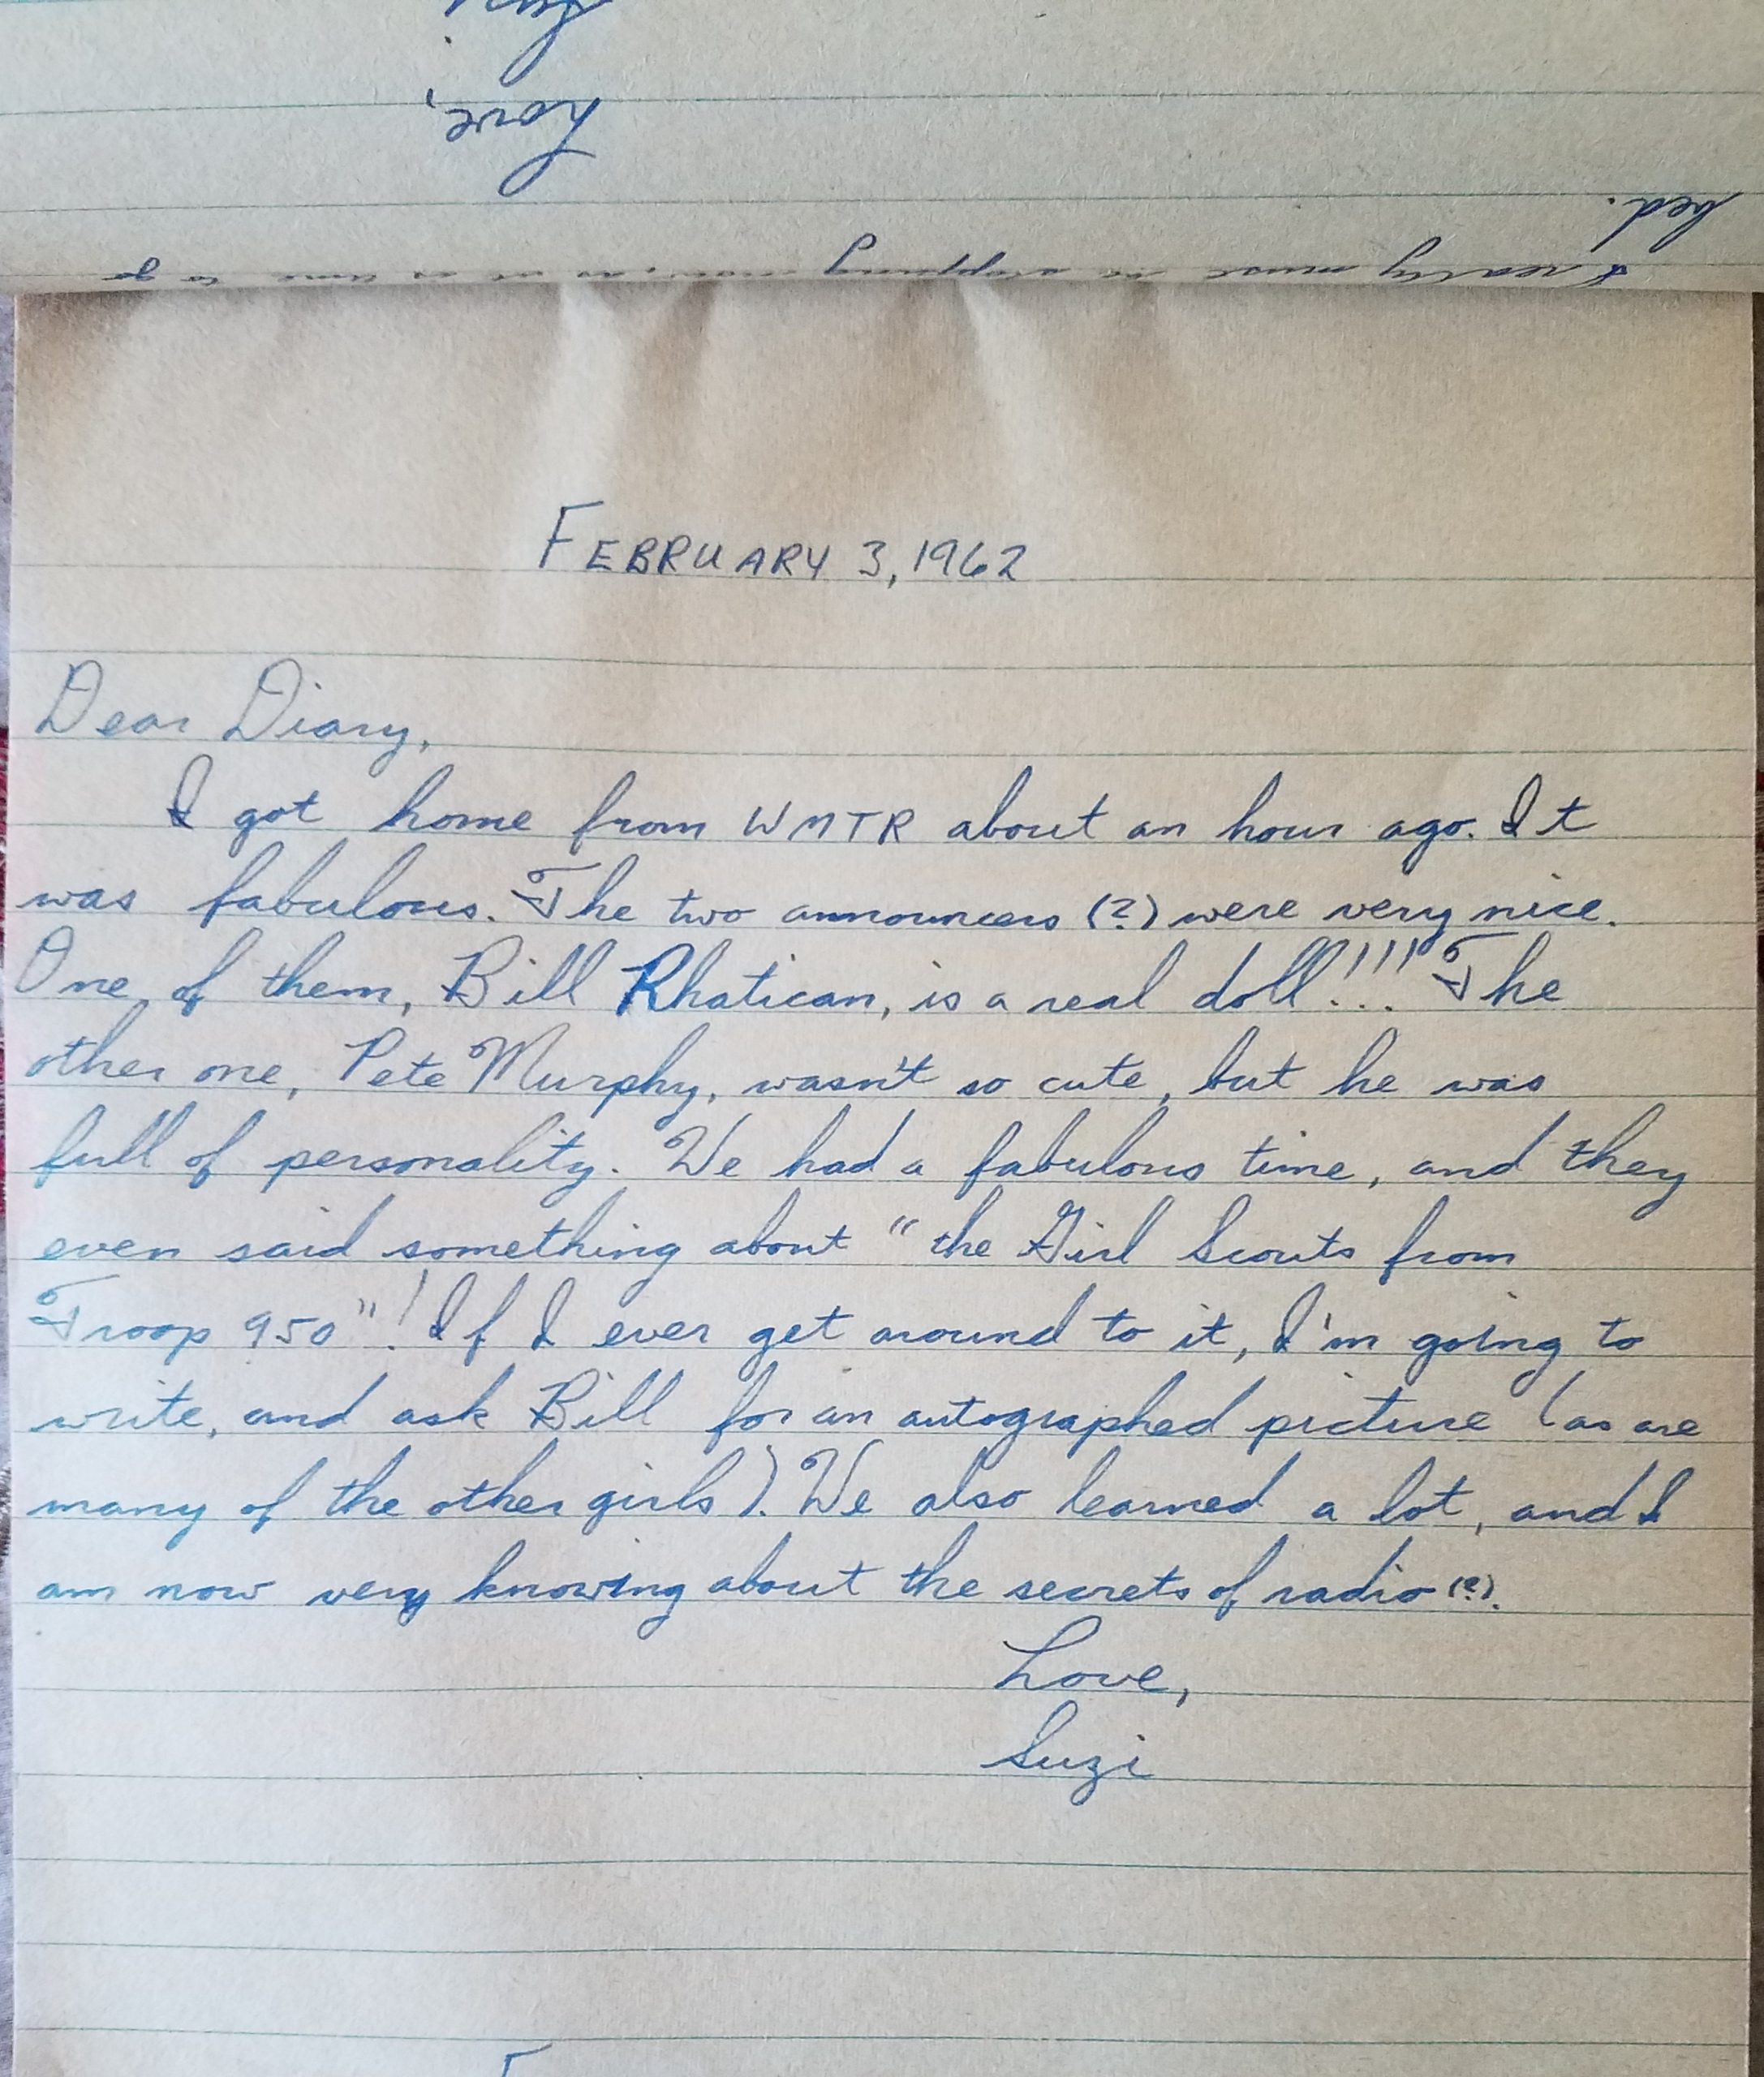 I really must be stopping now, as it is time to go
bed.
Love,
FEBRUARY 3, 1962
Dear Diary,
I got home from WMTR about an hour ago. It
was fabulous. The two announcers (?) were very nice.
One of them, Bill Rhatican, is a real doll!!!! The
other one, Pete Murphy, wasn't so cute, but he was
full of personality. We had a fabulous time, and they
even said something about "the Girl Scouts from
Troop 950"! If I ever get around to it, I'm going to
write, and ask Bill for an autographed picture (as are
many of the other girls). We also learned a lot, and I
am now very knowing about the secrets of radio (?).
Love,
Suzi